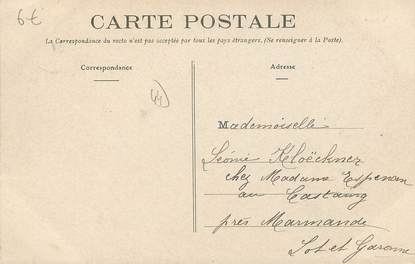 6€
CARTE POSTALE
(La Correspondance du recto n'est pas acceptée par tous les pays étrangers. (Se renseigner à la Poste).
Correspondance
Adresse
44
Mademoiselle
Léonie Kloëckner
chez Madame Espenan
au Castaing
près Marmande
Lot et Garonne